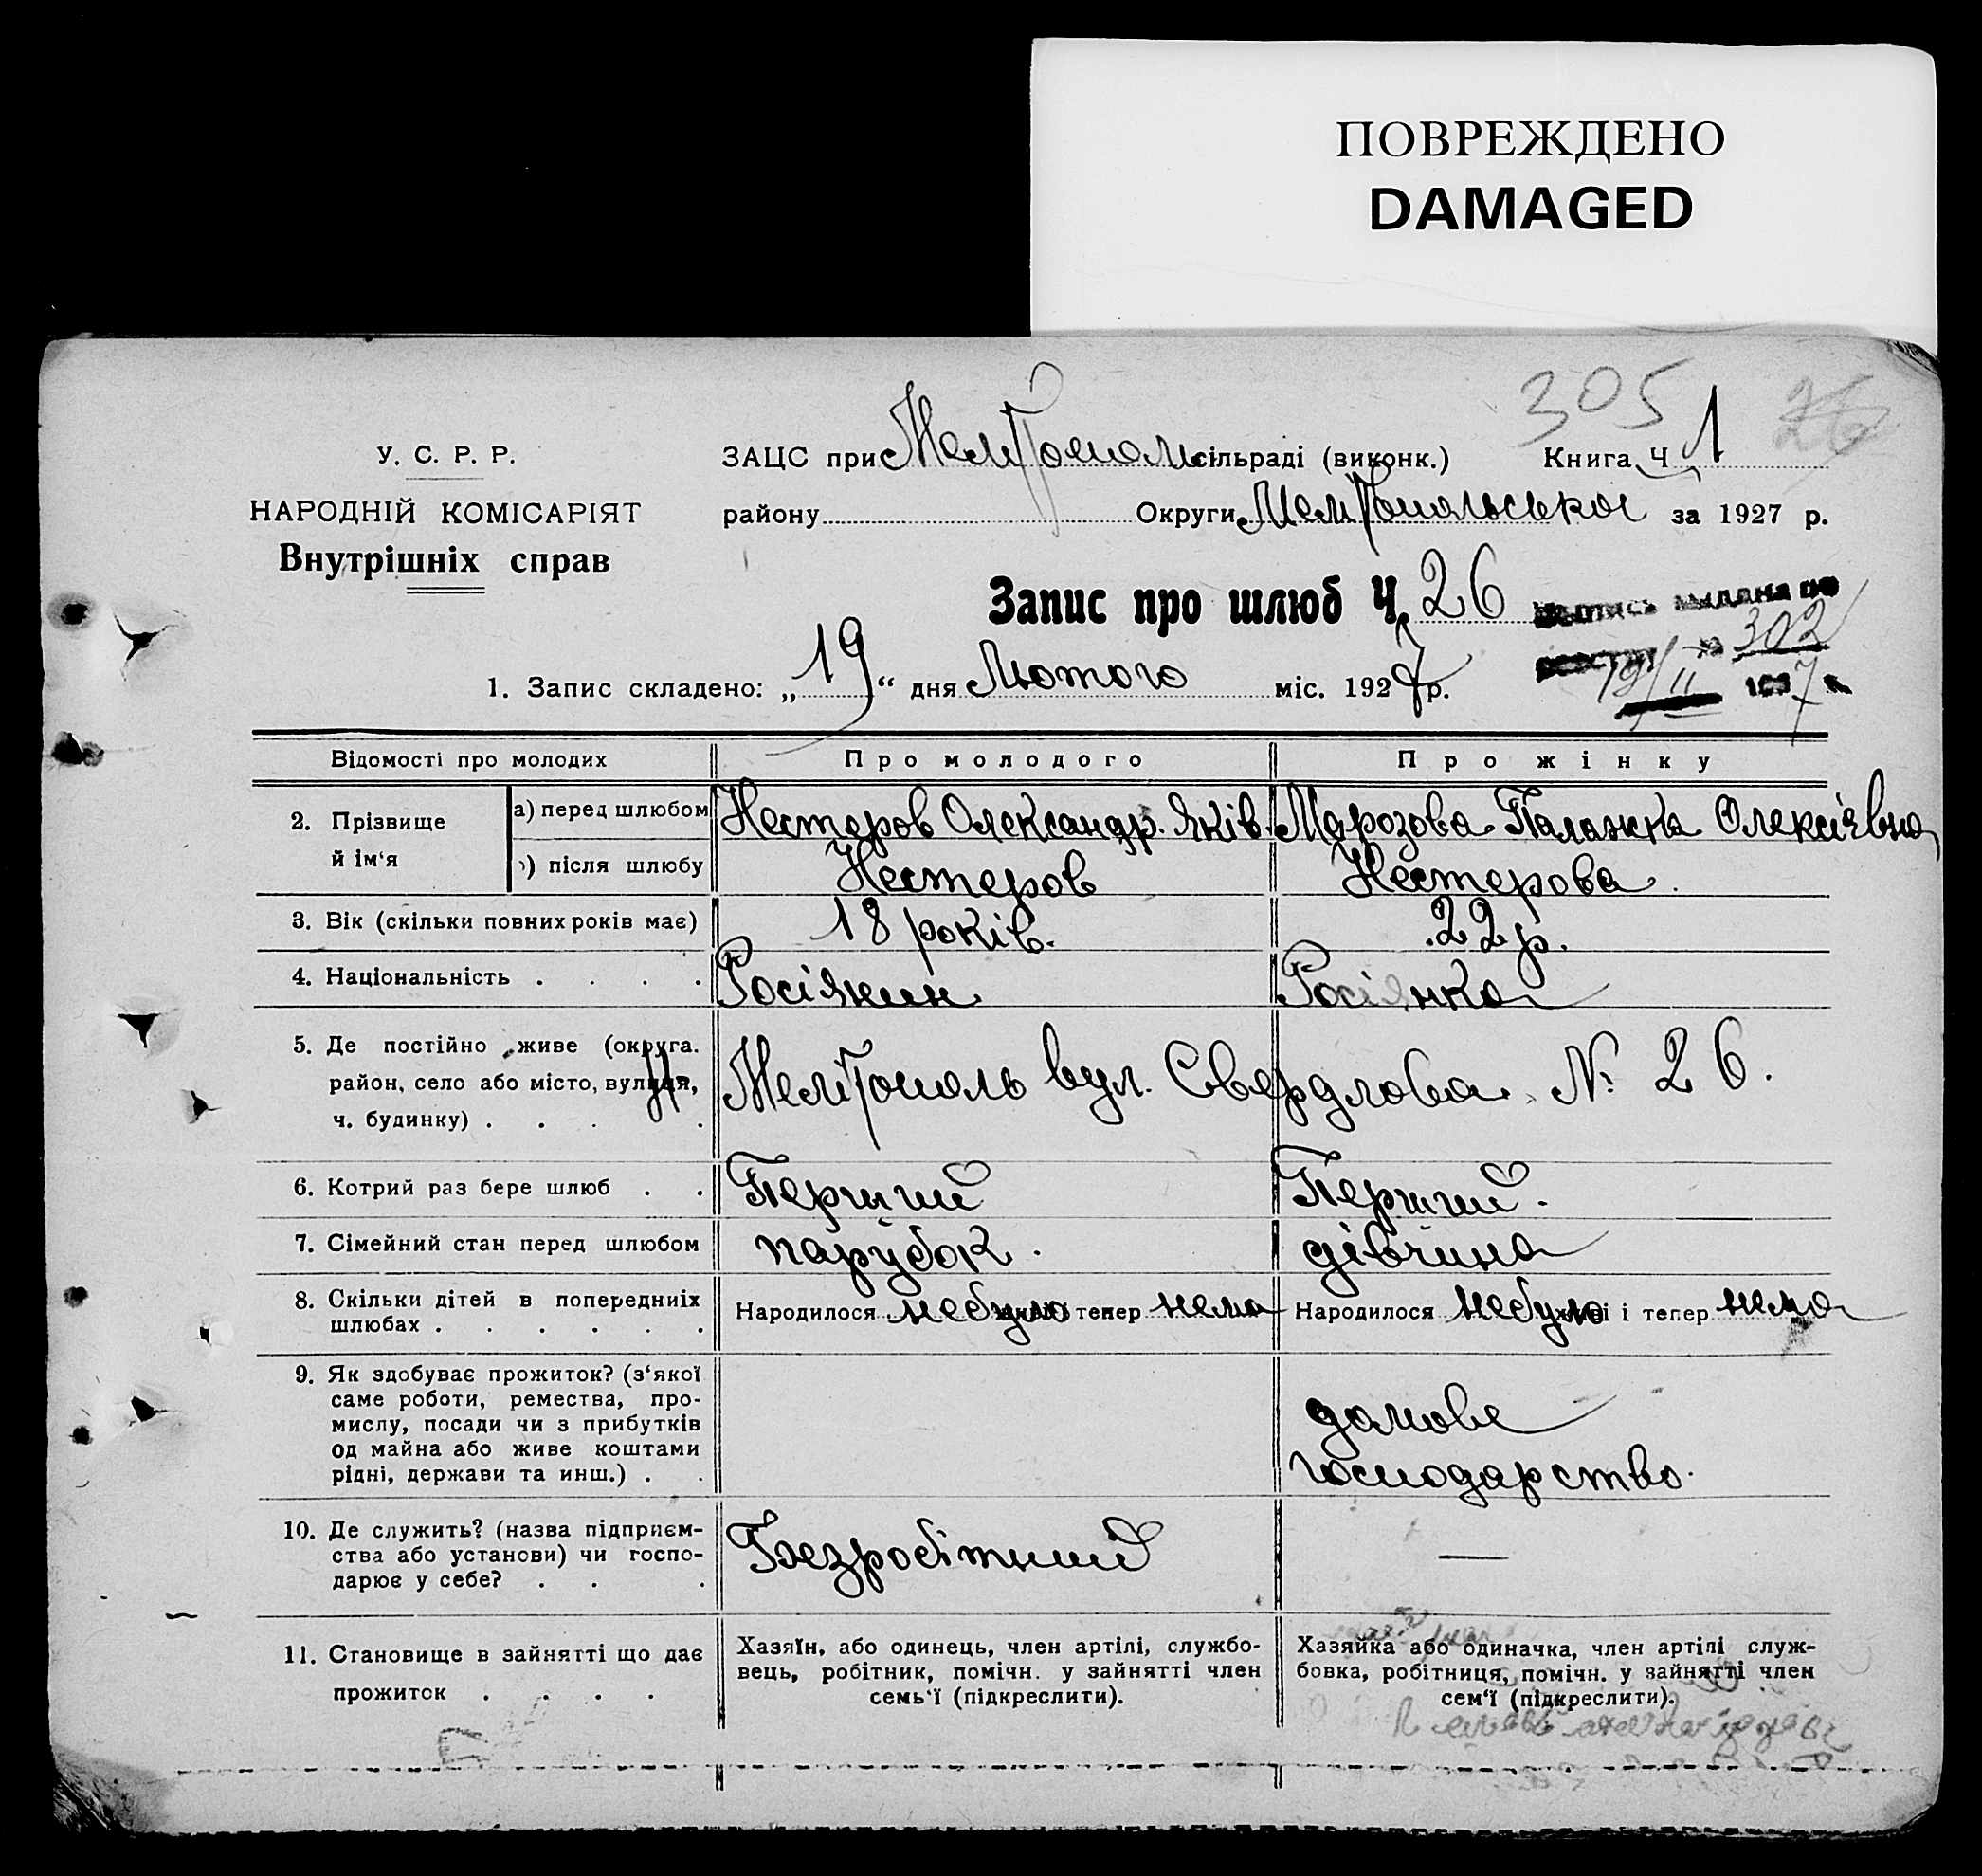 ПОВРЕЖДЕНО
DAMAGED
305 26
У. С. Р. Р.
НАРОДНІЙ КОМІСАРІЯТ
Внутрішніх справ
ЗАЦС при Мелітопол. сільраді (виконк.) Книга Ч 1
району Округи Мелітопольської за 1927 р.
Запис про шлюб Ч. 26
выдана по
за 302
19/II 1927
1. Запис складено: „19“ дня Лютого міс. 1927 р.
Відомості про молодих Про молодого Про жінку
2. Прізвище й ім‘я а) перед шлюбом Нестеров Олександр. Яків. Марозова Палажка Олексіявна
) після шлюбу Нестеров Нестерова.
3. Вік (скільки повних років має) 18 років. 22 р.
4. Національність . . . . Росіянин Росіянка
5. Де постійно живе (округа. район, село або місто, вулиця, ч. будинку) . . . . Мелітополь вул. Свердлова № 26.
6. Котрий раз бере шлюб . . Перший Перший.
7. Сімейний стан перед шлюбом парубок. дівчина
8. Скільки дітей в попередниіх шлюбах . . . . . . Народилося небуло живі і тепер нема Народилося небуло живі і тепер нема
9. Як здобуває прожиток? (з‘якої
саме роботи, ремества, про-
мислу, посади чи з прибутків
од майна або живе коштами
рідні, держави та инш.) . .
домове
господарство.
10. Де служить? (назва підприєм-
ства або установи) чи госпо-
дарює у себе? . . .
Безробітний —
11. Становище в зайнятті що дає
прожиток . . . .
Хазяїн, або одинець, член артілі, службо-
вець, робітник, помічн. у зайнятті член
семь‘ї (підкреслити).
Хазяйка або одиначка, член артілі служ-
бовка, робітниця, помічн. у зайнятті член
сем‘ї (підкреслити).